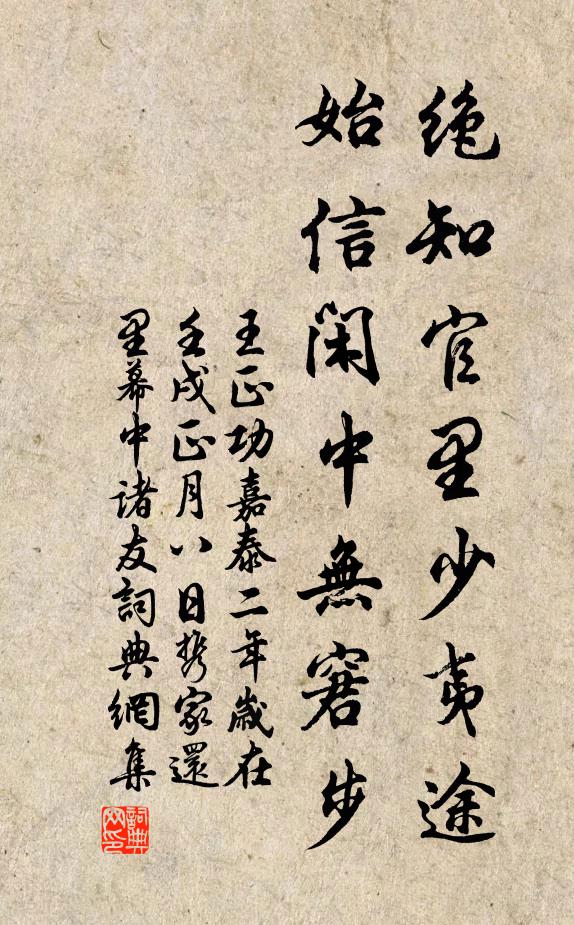 绝知官里少夷途
始信闲中無窘步
王正功嘉泰二年歲在
壬戌正月八日携家還
里幕中诸友詞典網集
詞典网印